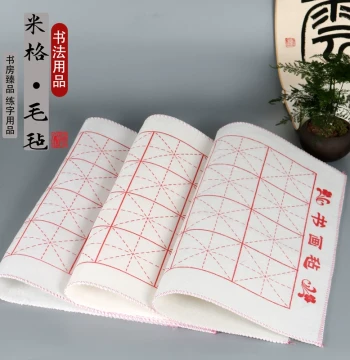 米格·毛毡
书法用品
书房臻品 练字用品
书画毡
雲